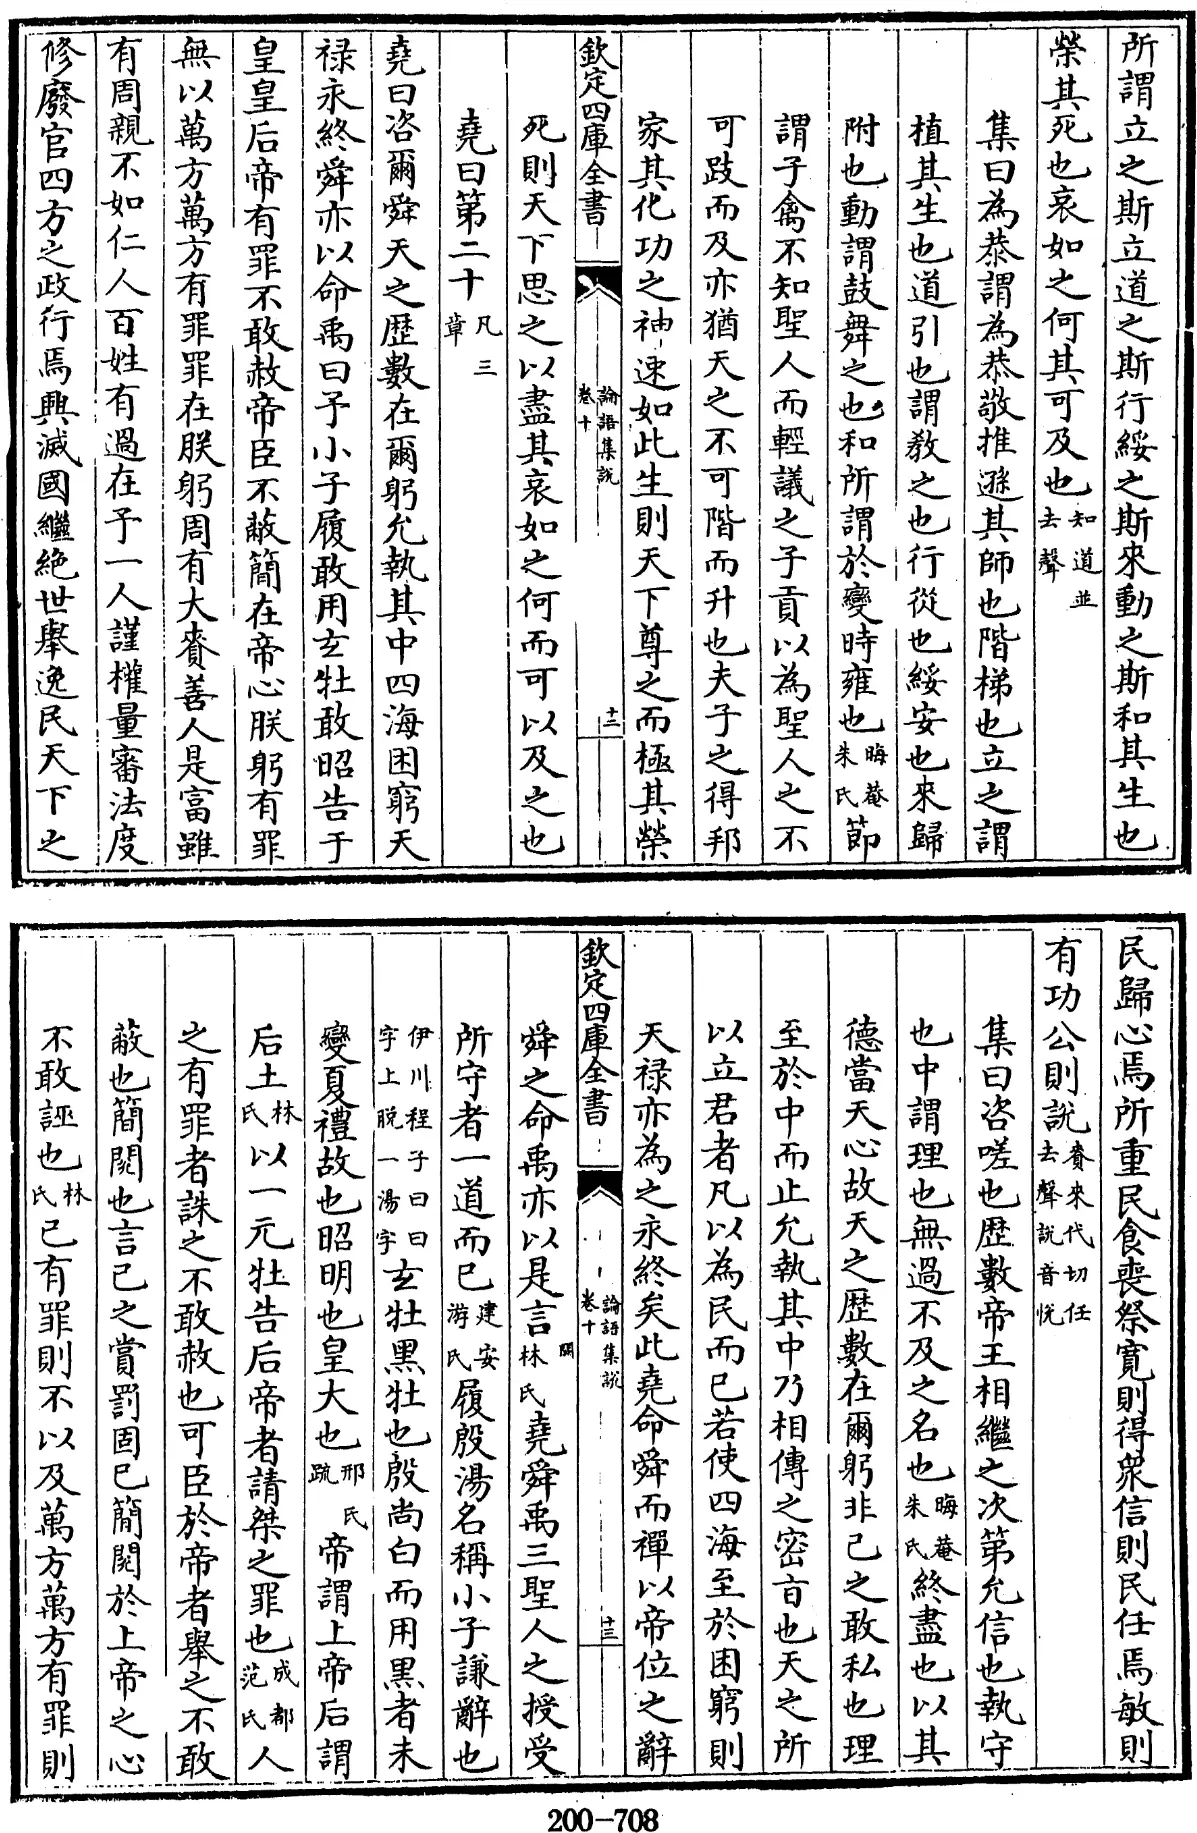 所謂立之斯立道之斯行綏之斯來動之斯和其生也
榮其死也哀如之何其可及也知道並去聲
集曰為恭謂為恭敬推遜其師也階梯也立之謂
植其生也道引也謂教之也行從也綏安也來歸
附也動謂鼓舞之也和所謂於變時雍也晦菴朱氏節
謂子禽不知聖人而輕議之子貢以為聖人之不
可跂而及亦猶天之不可階而升也夫子之得邦
家其化功之神速如此生則天下尊之而極其榮
欽定四庫全書
論語集說
卷十
十二
死則天下思之以盡其哀如之何而可以及之也
堯曰第二十凡三章
堯曰咨爾舜天之歷數在爾躬允執其中四海困窮天
祿永終舜亦以命禹曰予小子履敢用玄牡敢昭告于
皇皇后帝有罪不敢赦帝臣不蔽簡在帝心朕躬有罪
無以萬方萬方有罪罪在朕躬周有大賚善人是富雖
有周親不如仁人百姓有過在予一人謹權量審法度
修廢官四方之政行焉興滅國繼絶世舉逸民天下之
民歸心焉所重民食喪祭寛則得衆信則民任焉敏則
有功公則說賚來代切任去聲說音恱
集曰咨嗟也歷數帝王相繼之次第允信也執守
也中謂理也無過不及之名也晦菴朱氏終盡也以其
德當天心故天之歷數在爾躬非己之敢私也理
至於中而止允執其中乃相傳之密㫖也天之所
以立君者凡以為民而已若使四海至於困窮則
天祿亦為之永終矣此堯命舜而禪以帝位之辭
欽定四庫全書
論語集說
卷十
十三
舜之命禹亦以是言閩林氏堯舜禹三聖人之授受
所守者一道而已建安游氏履殷湯名稱小子謙辭也
伊川程子曰曰字上脱一湯字玄牡黑牡也殷尚白而用黑者未
變夏禮故也昭明也皇大也邢氏疏帝謂上帝后謂
后土林氏以一元牡告后帝者請桀之罪也成都范氏人
之有罪者誅之不敢赦也可臣於帝者舉之不敢
蔽也簡閱也言已之賞罰固已簡閱於上帝之心
不敢誣也林氏已有罪則不以及萬方萬方有罪則
200-708